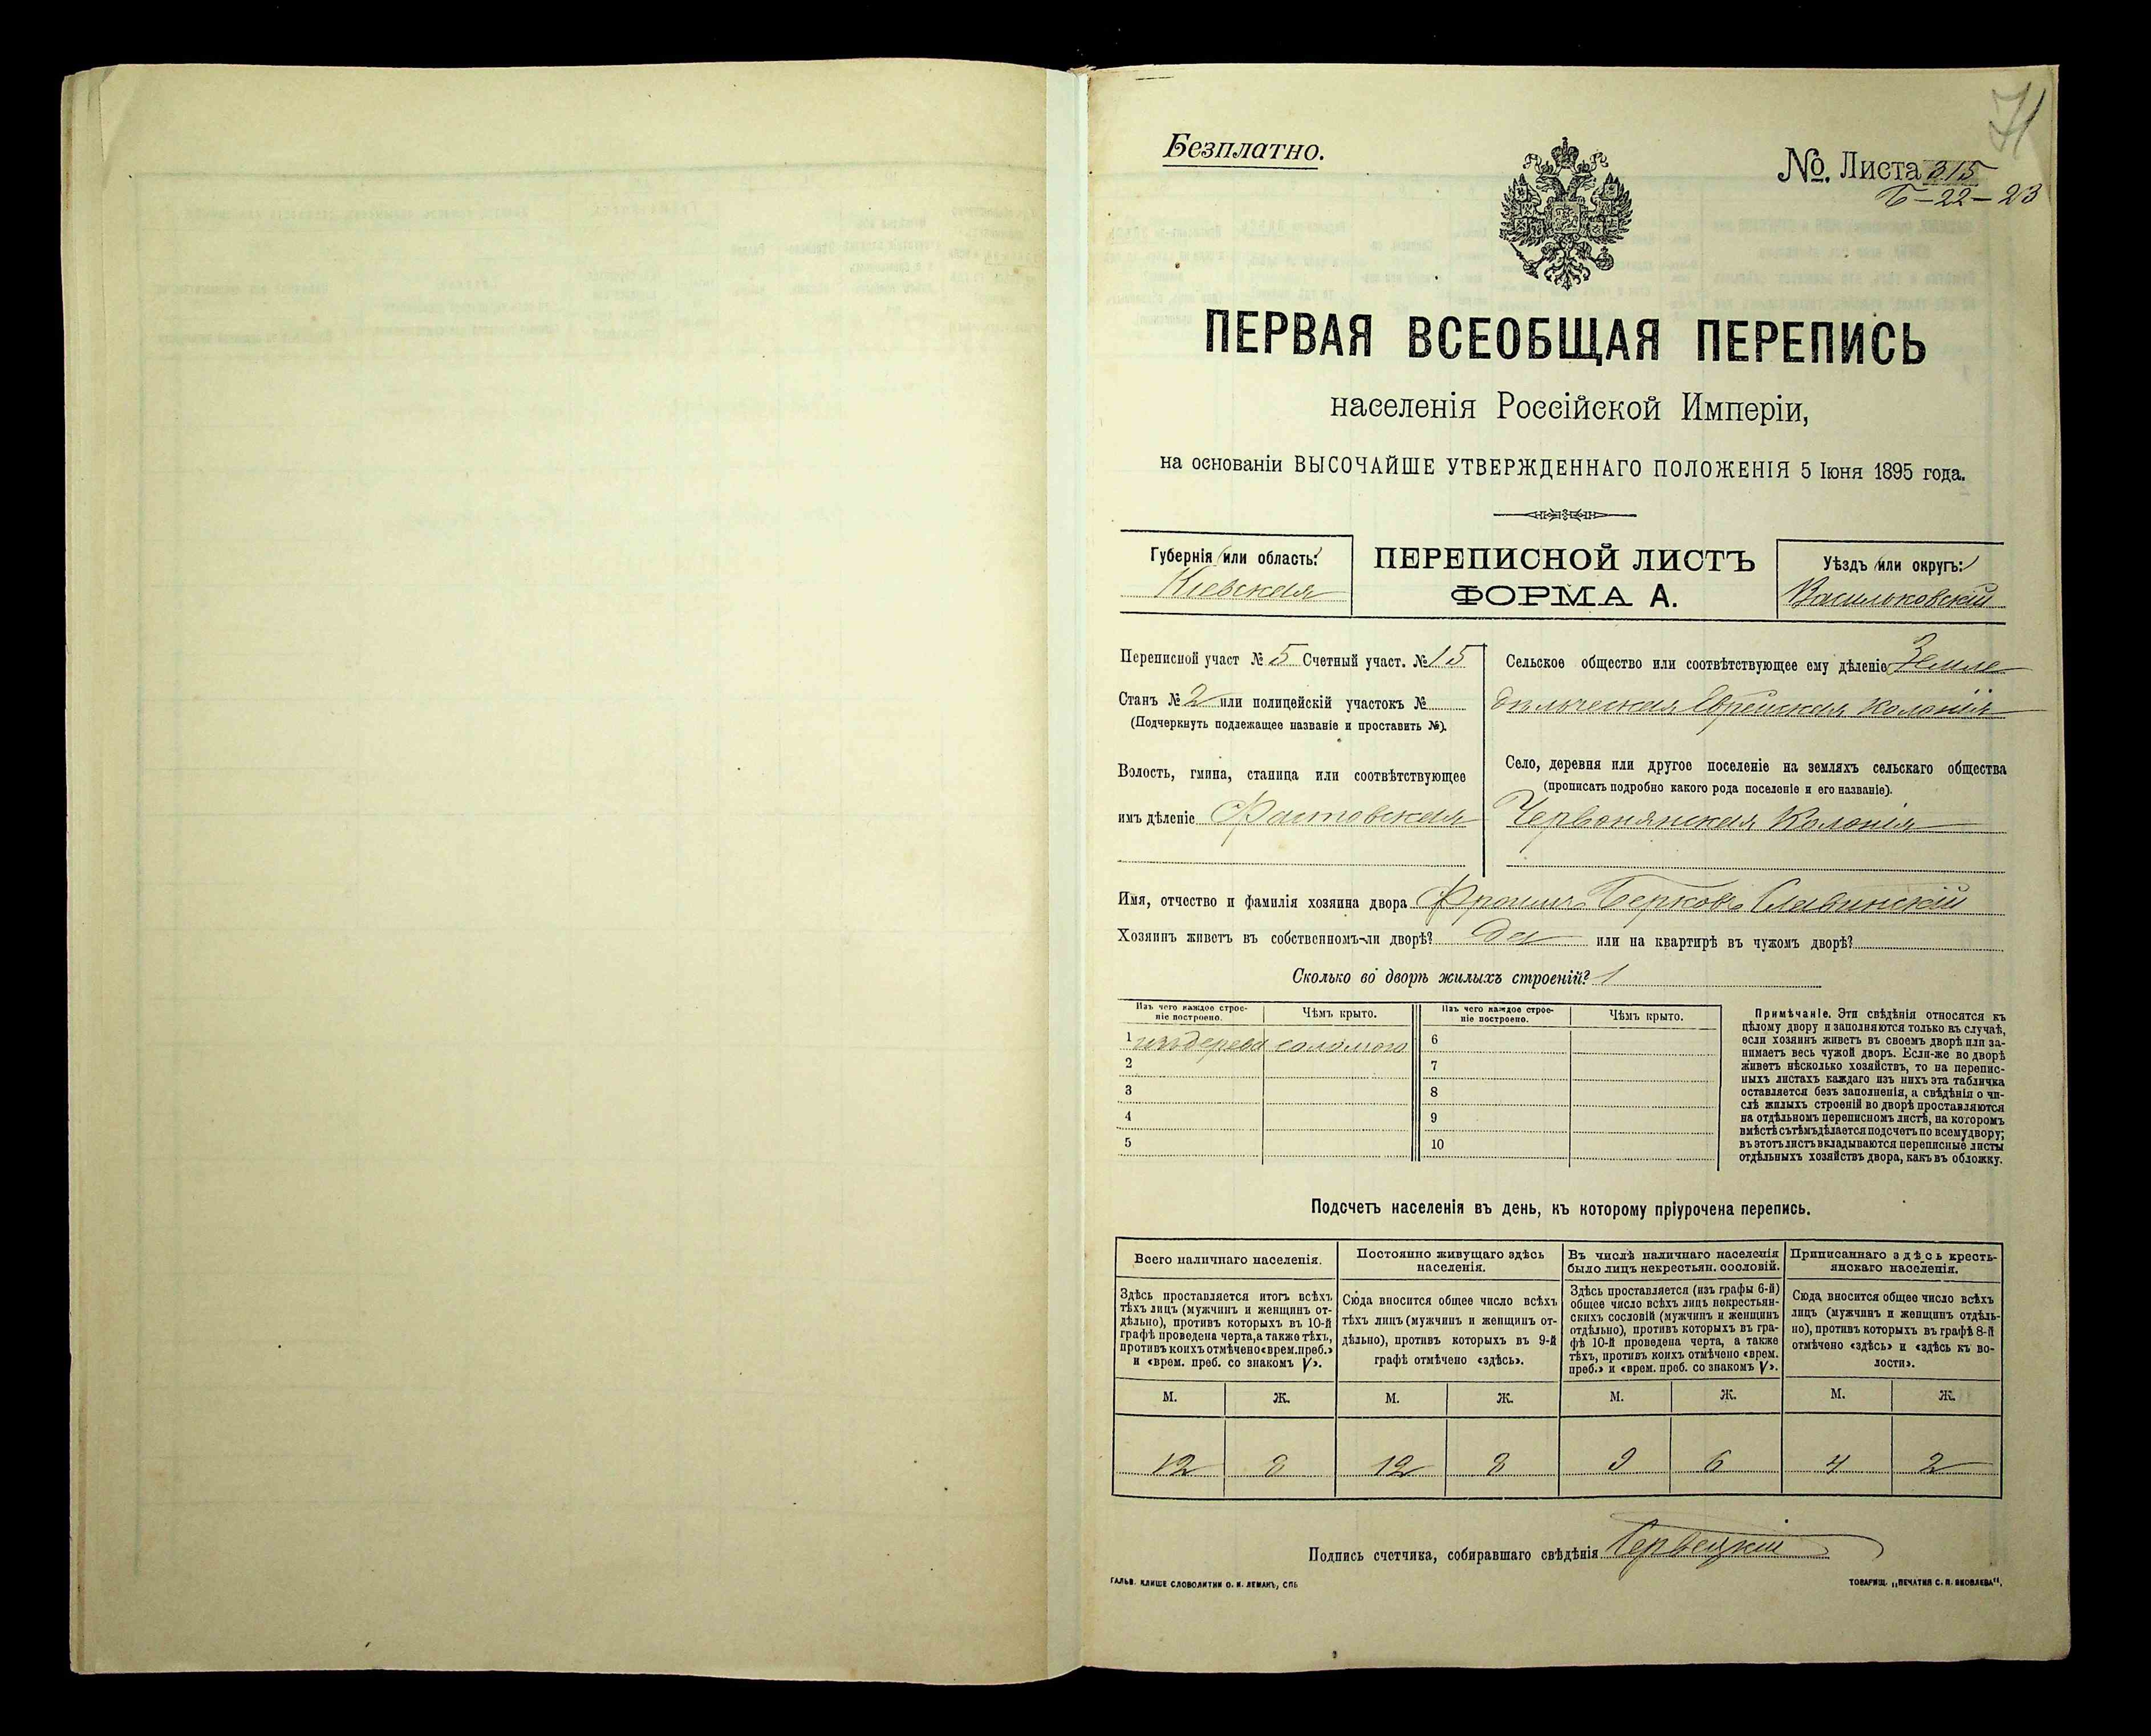 71
Безплатно.
№. Листа 315
Б-22-23
ПЕРВАЯ ВСЕОБЩАЯ ПЕРЕПИСЬ
населенія Россійской Имперіи,
на основаніи ВЫСОЧАЙШЕ УТВЕРЖДЕННАГО ПОЛОЖЕНІЯ 5 Іюня 1895 года.
Губернія (или область:)
Кіевская
ПЕРЕПИСНОЙ ЛИСТЪ
ФОРМА А.
Уѣздъ (или округъ:)
Васильковскій
Переписной участ № 5 Счетный участ. № 15
Станъ № 2 или полицейскій участокъ №
(Подчеркнуть подлежащее названіе и проставить №).
Волость, гмина, станица или соотвѣтствующее
имъ дѣленіе Фастовская
Сельское общество или соотвѣтствующее ему дѣленіе Земле
дѣльческая Еврейская Колонія
Село, деревня или другое поселеніе на земляхъ сельскаго общества
(прописать подробно какого рода поселеніе и его названіе).
Червонянская Колонія
Имя, отчество и фамилія хозяина двора Фроимъ Берковъ Славинскій
Хозяинъ живетъ въ собственномъ-ли дворѣ? да или на квартирѣ въ чужомъ дворѣ?
Сколько во дворѣ жилыхъ строеній? 1
Изъ чего каждое строе-
ніе построено.
Чѣмъ крыто.
Изъ чего каждое строе-
ніе построено.
Чѣмъ крыто.
1 изъ дерева соломою
2
3
4
5
6
7
8
9
10
Примѣчаніе. Эти свѣдѣнія относятся къ
цѣлому двору и заполняются только въ случаѣ,
если хозяинъ живетъ въ своемъ дворѣ или за-
нимаетъ весь чужой дворъ. Если-же во дворѣ
живетъ нѣсколько хозяйствъ, то на перепис-
ныхъ листахъ каждаго изъ нихъ эта табличка
оставляется безъ заполненія, а свѣдѣнія о чи-
слѣ жилыхъ строеній во дворѣ проставляются
на отдѣльномъ переписномъ листѣ, на которомъ
вмѣстѣ съ тѣмъ дѣлается подсчетъ по всему двору;
въ этотъ листъ вкладываются переписные листы
отдѣльныхъ хозяйствъ двора, какъ въ обложку.
Подсчетъ населенія въ день, къ которому пріурочена перепись.
Всего наличнаго населенія.
Здѣсь проставляется итогъ всѣхъ
тѣхъ лицъ (мужчинъ и женщинъ от-
дѣльно), противъ которыхъ въ 10-й
графѣ проведена черта, а также тѣхъ,
противъ коихъ отмѣчено «врем. преб.»
и «врем. преб. со знакомъ V».
Постоянно живущаго здѣсь
населенія.
Сюда вносится общее число всѣхъ
тѣхъ лицъ (мужчинъ и женщинъ от-
дѣльно), противъ которыхъ въ 9-й
графѣ отмѣчено «здѣсь».
Въ числѣ наличнаго населенія
было лицъ некрестьян. сословій.
Здѣсь проставляется (изъ графы 6-й)
общее число всѣхъ лицъ некрестьян-
скихъ сословій (мужчинъ и женщинъ
отдѣльно), противъ которыхъ въ гра-
фѣ 10-й проведена черта, а также
тѣхъ, противъ коихъ отмѣчено «врем.
преб.» и «врем. преб. со знакомъ V».
Приписаннаго здѣсь кресть-
янскаго населенія.
Сюда вносится общее число всѣхъ
лицъ (мужчинъ и женщинъ отдѣль-
но), противъ которыхъ въ графѣ 8-й
отмѣчено «здѣсь» и «здѣсь къ во-
лости».
М. Ж. М. Ж. М. Ж. М. Ж.
12 8 12 8 9 6 4 2
Подпись счетчика, собиравшаго свѣдѣнія
ГАЛЬВ. КЛИШЕ СЛОВОЛИТНИ О. И. ЛЕМАНЪ, СПБ
ТОВАРИЩ. „ПЕЧАТНЯ С. П. ЯКОВЛЕВА“.